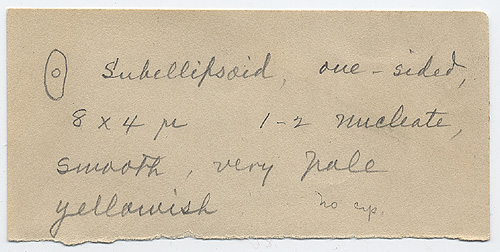 Subellipsoid, one-sided,
8 x 4 µ 1-2 nucleate,
smooth, very pale
yellowish no ap.